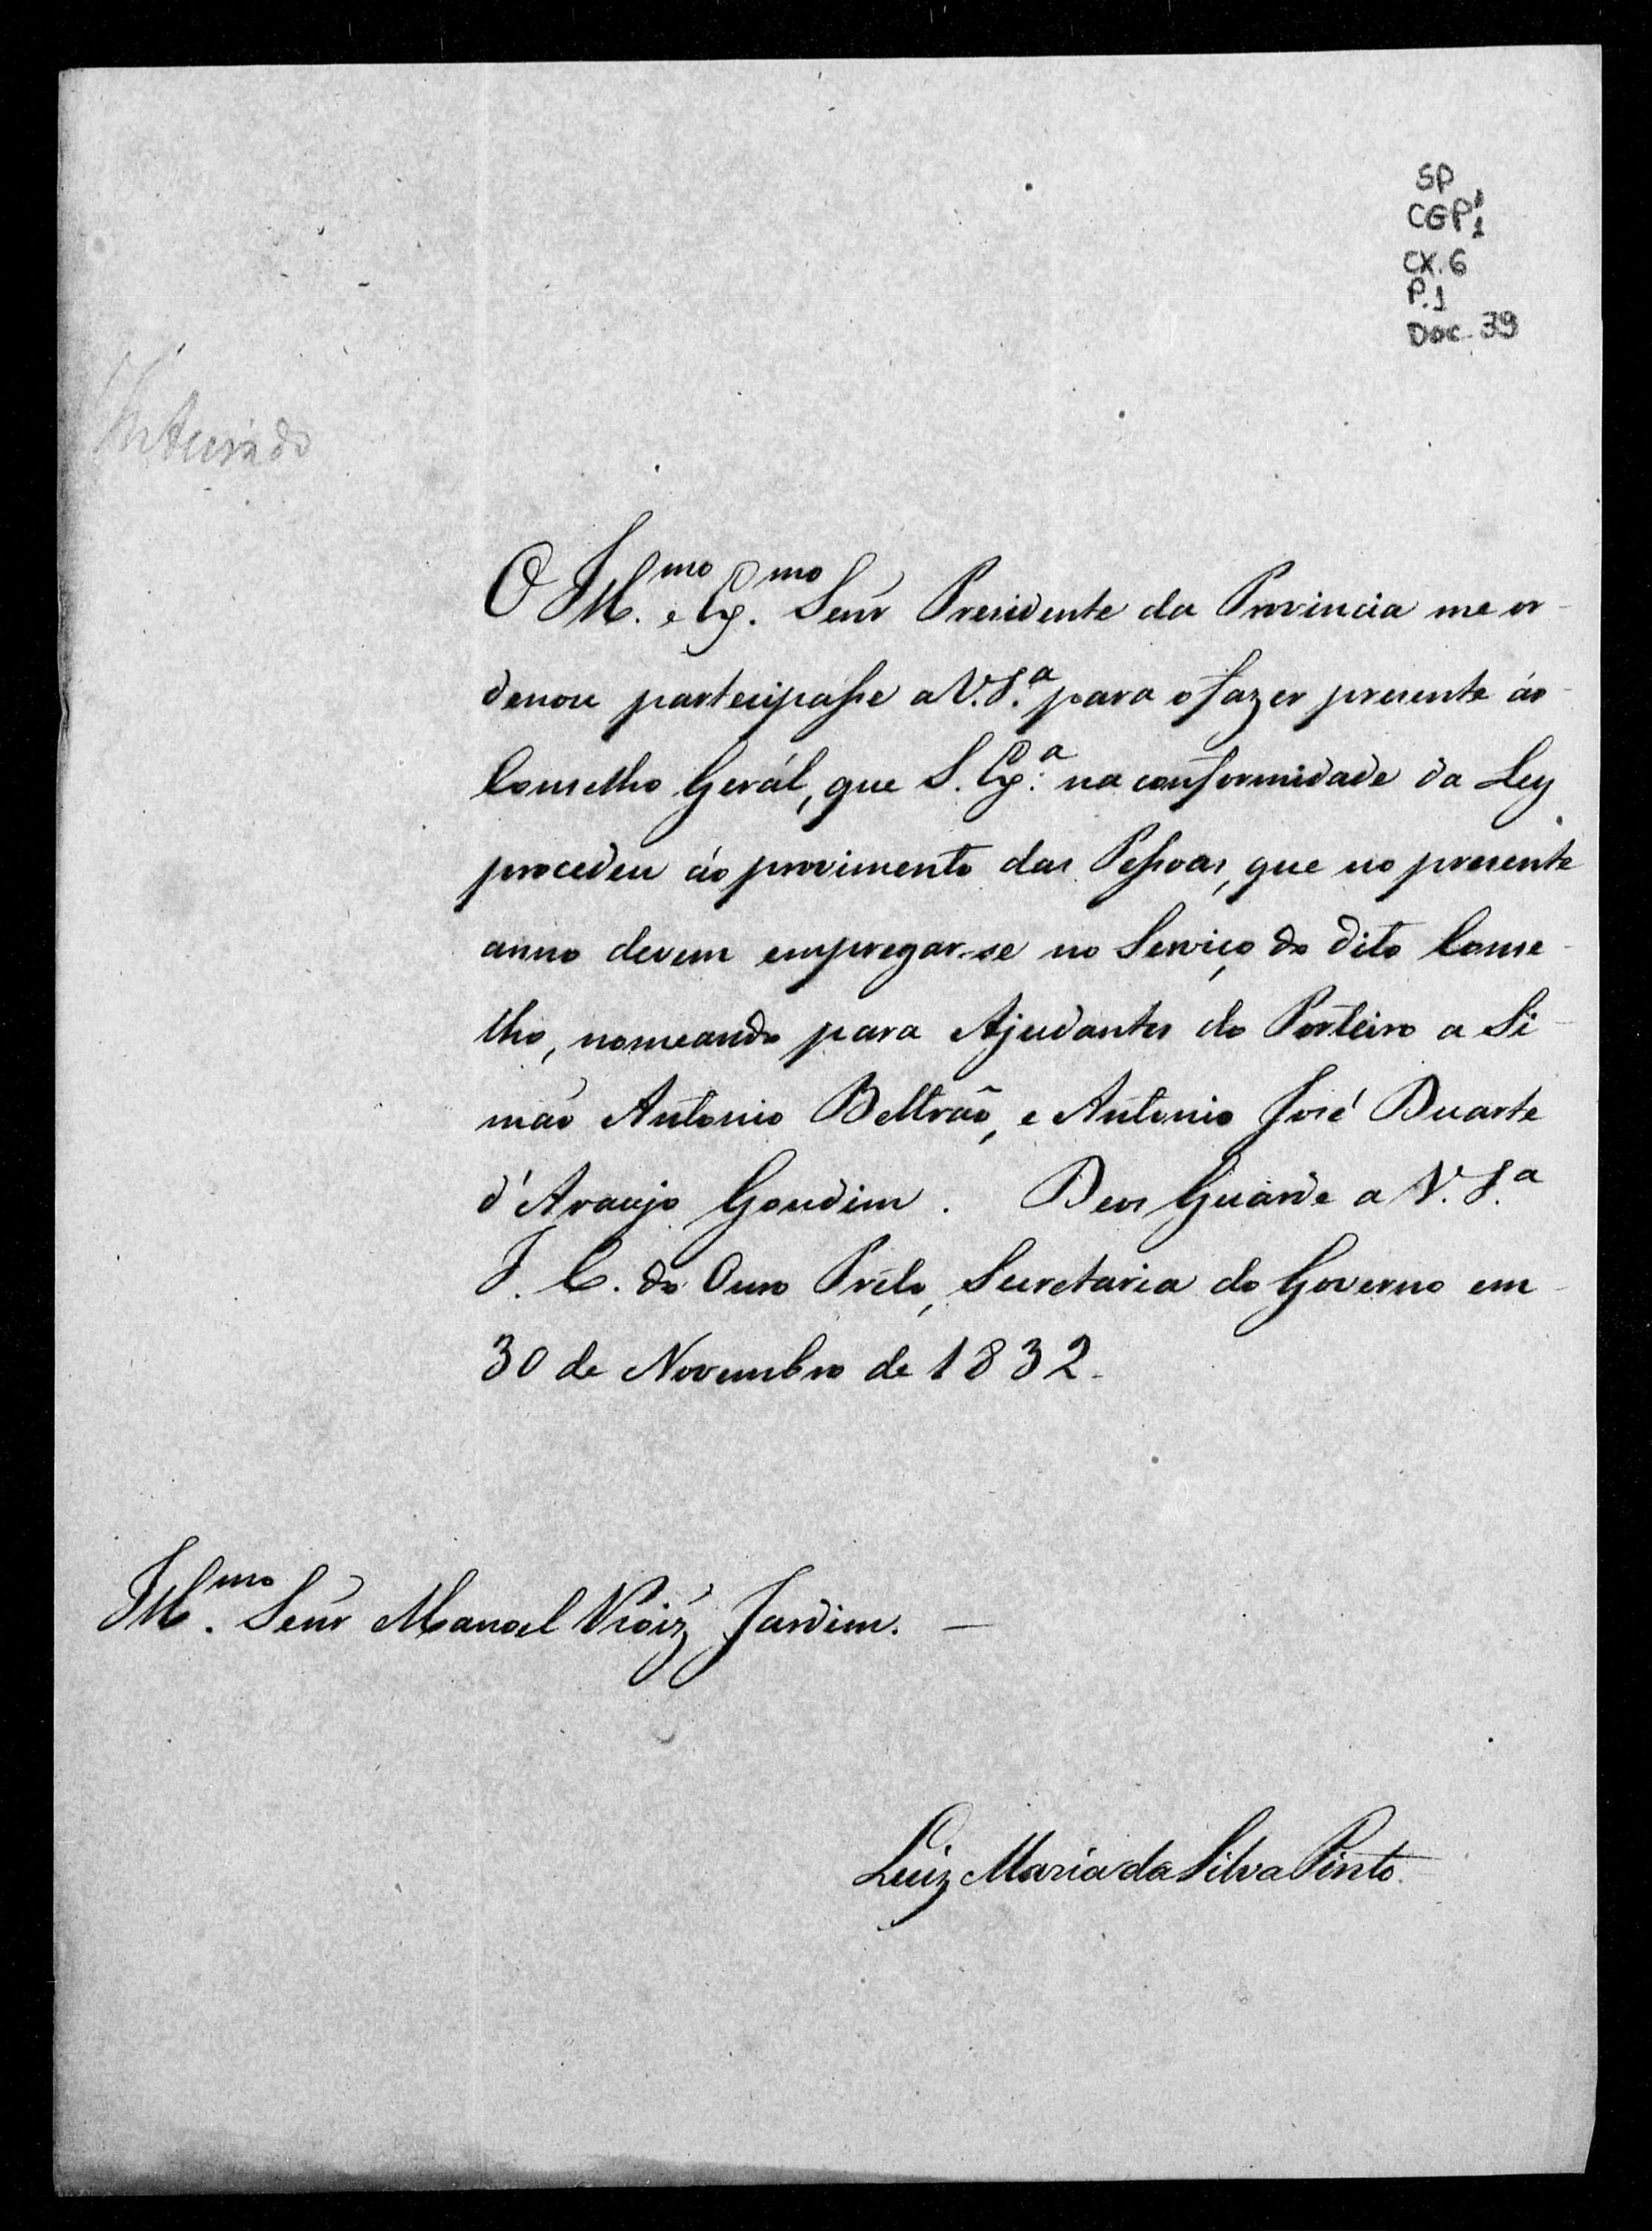 SP
CGP¹1
CX. 6
P. 1
Doc. 39
Inteirado
O Ill.mo e Ex.mo Senr Presidente da Provincia me or-
denou partecipasse a V.S.a para o fazer presente áo
Conselho Gerál, que S. Ex.a na conformidade da Ley
procedeu áo provimento das Pessoas, que no presente
anno devem empregar-se no Serviço do dito Conse-
lho, nomeando para Ajudantes do Porteiro a Si-
mão Antonio Beltrão, e Antonio José Duarte
d'Araujo Gondim. Deos Guarde a V. S.a
I. C. do Ouro Prêto, Secretaria do Governo em
30 de Novembro de 1832.
Ill.mo Senr Manoel Jardim.
Luiz Maria da Silva Pinto.